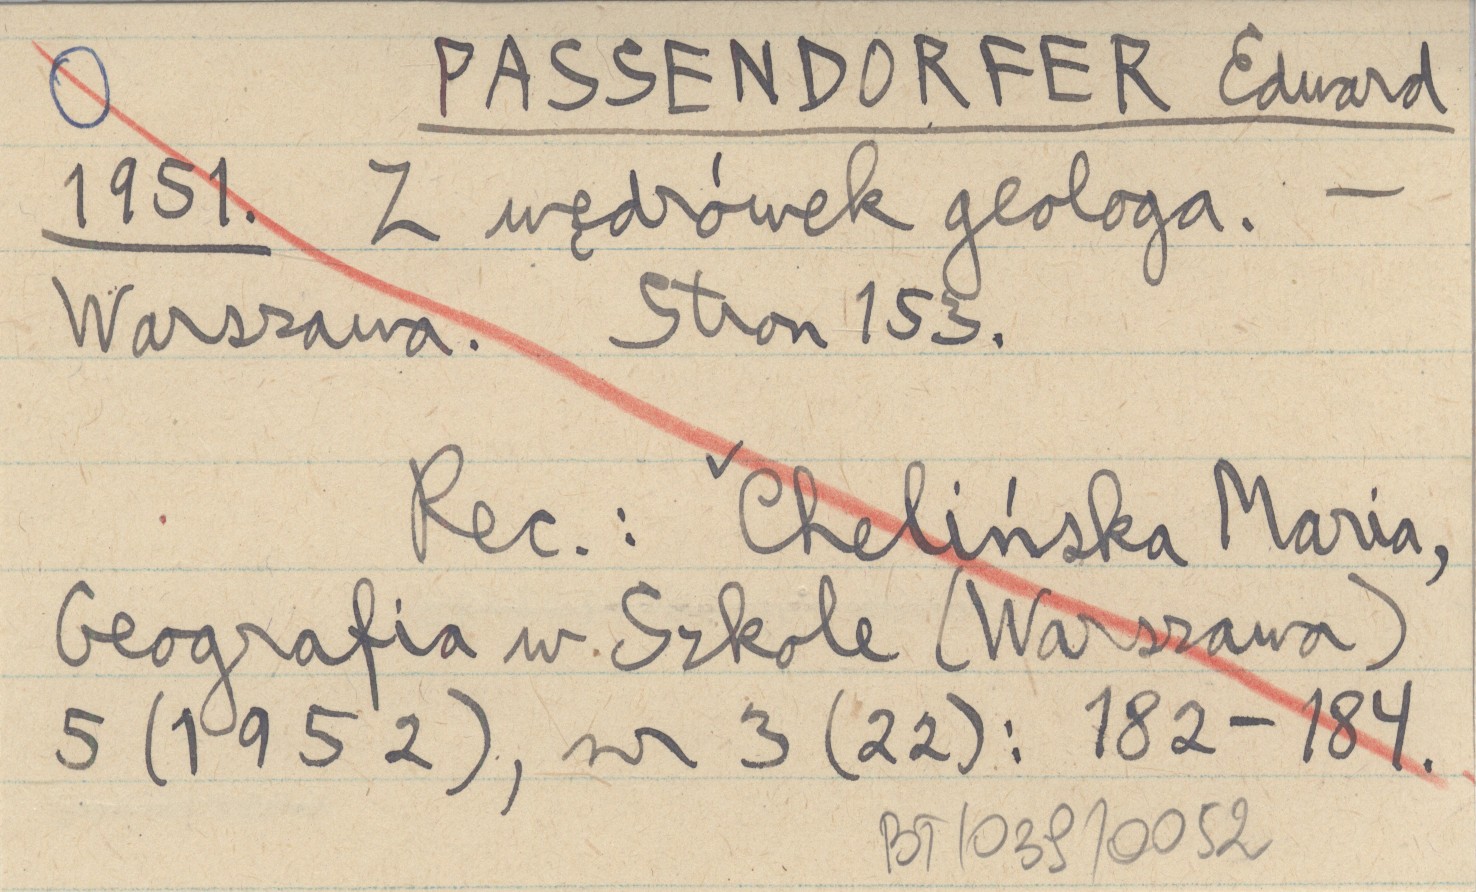 PASSENDORFER Edward
1951. Z wędrówek geologa. —
Warszawa. Stron 153.
Rec.: ✓Chelińska Maria,
Geografia w Szkole (Warszawa)
5 (1952), nr 3 (22): 182-184.
BT/039/0052